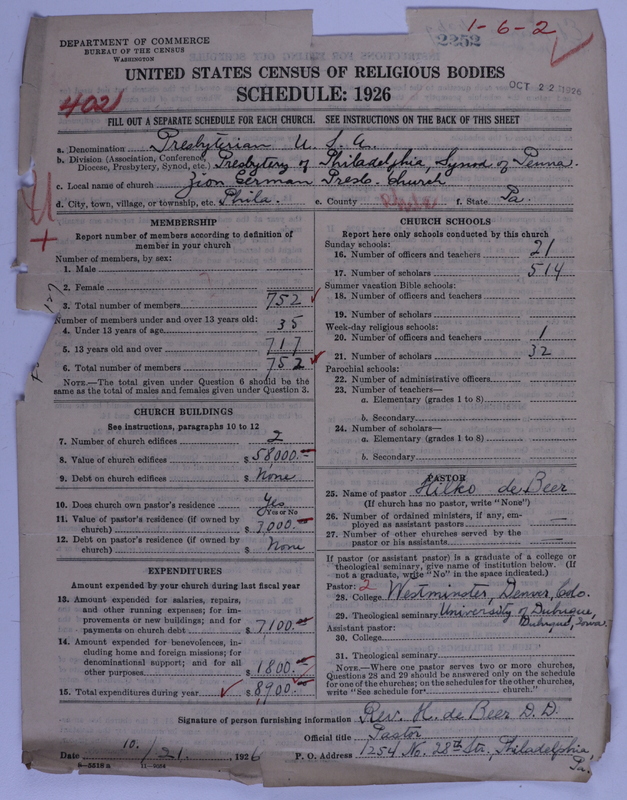 1-6-2
2252
DEPARTMENT OF COMMERCE
BUREAU OF THE CENSUS
WASHINGTON
UNITED STATES CENSUS OF RELIGIOUS BODIES
SCHEDULE: 1926
OCT 22 1926
4021
FILL OUT A SEPARATE SCHEDULE FOR EACH CHURCH. SEE INSTRUCTIONS ON THE BACK OF THIS SHEET
a. Denomination Presbyterian U. S. A.
b. Division (Association, Conference, Diocese, Presbytery, Synod, etc.) Presbytery of Philadelphia, Synod of Penna.
c. Local name of church Zion German Presb. Church
d. City, town, village, or township, etc. Phila. e. County Phila f. State Pa.
MEMBERSHIP
Report number of members according to definition of
member in your church
Number of members, by sex:
1. Male
2. Female
3. Total number of members 752
Number of members under and over 13 years old:
4. Under 13 years of age 35
5. 13 years old and over 717
6. Total number of members 752
NOTE.—The total given under Question 6 should be the
same as the total of males and females given under Question 3.
CHURCH BUILDINGS
See instructions, paragraphs 10 to 12
7. Number of church edifices 2
8. Value of church edifices $ 58000.
9. Debt on church edifices $ None
10. Does church own pastor's residence Yes
Yes or No
11. Value of pastor's residence (if owned by
church) $ 7,000.
12. Debt on pastor's residence (if owned by
church) $ None
EXPENDITURES
Amount expended by your church during last fiscal year
13. Amount expended for salaries, repairs,
and other running expenses; for im-
provements or new buildings; and for
payments on church debt $ 7100.
14. Amount expended for benevolences, in-
cluding home and foreign missions; for
denominational support; and for all
other purposes $ 1800.
15. Total expenditures during year $ 8900.
CHURCH SCHOOLS
Report here only schools conducted by this church
Sunday schools:
16. Number of officers and teachers 21
17. Number of scholars 514
Summer vacation Bible schools:
18. Number of officers and teachers
19. Number of scholars
Week-day religious schools:
20. Number of officers and teachers 1
21. Number of scholars 32
Parochial schools:
22. Number of administrative officers
23. Number of teachers—
a. Elementary (grades 1 to 8)
b. Secondary
24. Number of scholars—
a. Elementary (grades 1 to 8)
b. Secondary
PASTOR
25. Name of pastor Hilko de Beer
(If church has no pastor, write "None")
26. Number of ordained ministers, if any, em-
ployed as assistant pastors —
27. Number of other churches served by the
pastor or his assistants —
If pastor (or assistant pastor) is a graduate of a college or
theological seminary, give name of institution below. (If
not a graduate, write "No" in the space indicated.)
Pastor: 2
28. College Westminster, Denver, Colo.
29. Theological seminary University of Dubuque,
Dubuque, Iowa.
Assistant pastor:
30. College
31. Theological seminary
NOTE.—Where one pastor serves two or more churches,
Questions 28 and 29 should be answered only on the schedule
for one of the churches; on the schedules for the other churches,
write "See schedule for church."
Signature of person furnishing information Rev. H. de Beer D. D.
Official title Pastor
Date 10/21, 1926 P. O. Address 1254 No. 28th Str., Philadelphia,
Pa.
8—5518 a 11—9084